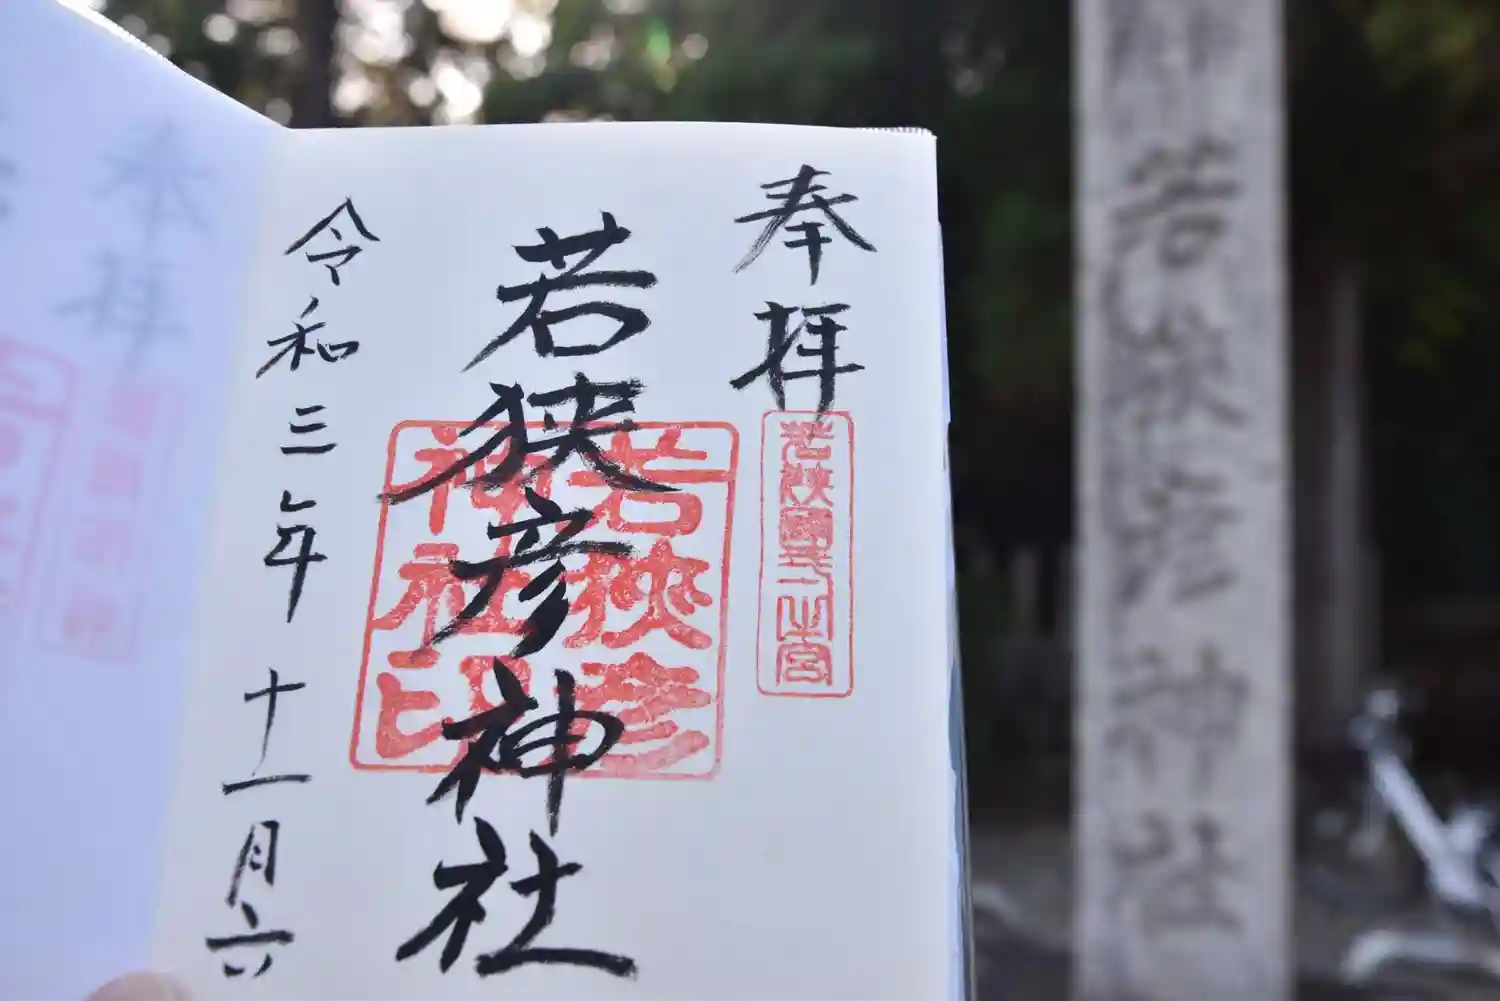 奉拝
若狭國一之宮
若狭彦神社
若狭彦神社印
令和三年十一月六
若狭彦神社
奉拝